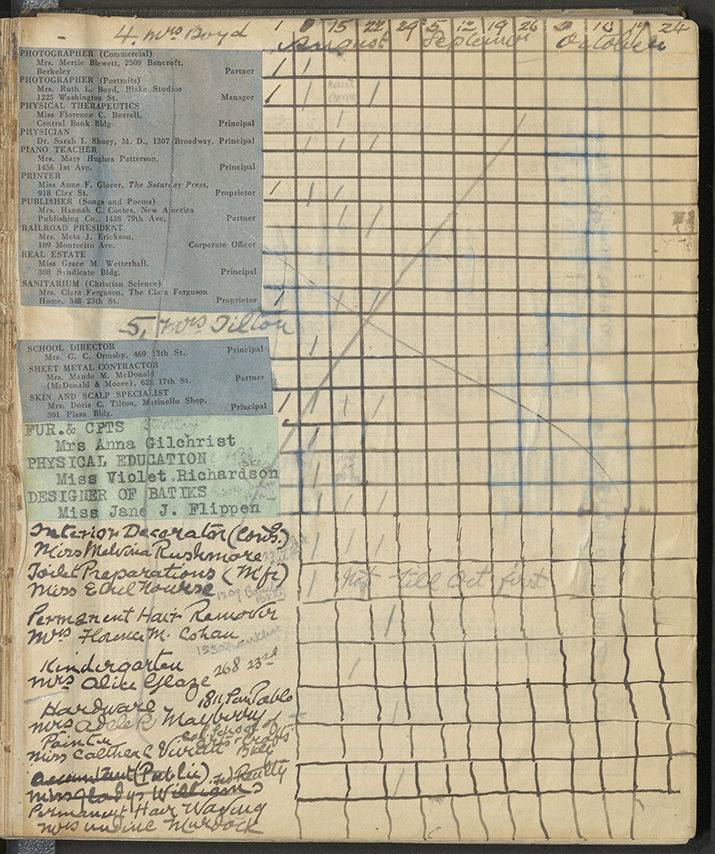 4. Mrs Boyd 1 8 15 22 29 5 12 19 26 3 10 17 24
August September October
PHOTOGRAPHER (Commercial)
Mrs. Mertie Blewett, 2509 Bancroft,
Berkeley Partner
PHOTOGRAPHER (Portraits)
Mrs. Ruth L. Boyd, Blake Studios
1225 Washington St. Manager
PHYSICAL THERAPEUTICS
Miss Florence C. Burrell,
Central Bank Bldg. Principal
PHYSICIAN
Dr. Sarah I. Shuey, M. D., 1307 Broadway, Principal
PIANO TEACHER
Mrs. Mary Hughes Patterson,
1456 1st Ave. Principal
PRINTER
Miss Anne F. Glover, The Saturday Press,
918 Clay St. Proprietor
PUBLISHER (Songs and Poems)
Mrs. Hannah C. Coates, New America
Publishing Co., 1438 79th Ave. Partner
RAILROAD PRESIDENT
Mrs. Meta J. Erickson,
109 Montecito Ave. Corporate Officer
REAL ESTATE
Miss Grace M. Wetterhall,
308 Syndicate Bldg. Principal
SANITARIUM (Christian Science)
Mrs. Clara Ferguson, The Clara Ferguson
Home, 348 25th St. Proprietor
5, Mrs Tilton
SCHOOL DIRECTOR
Mrs. G. C. Ormsby, 469 13th St. Principal
SHEET METAL CONTRACTOR
Mrs. Maude M. McDonald
(McDonald & Moore), 628 17th St. Partner
SKIN AND SCALP SPECIALIST
Mrs. Doris C. Tilton, Marinello Shop,
301 Plaza Bldg. Principal
FUR.& CPTS
Mrs Anna Gilchrist
PHYSICAL EDUCATION
Miss Violet Richardson
DESIGNER OF BATIKS
Miss Jane J. Flippen
Interior Decorator (Cons.)
Miss Melvina Rushmore
Toilet Preparations (Mfr)
Miss Ethel Nourse Not till Oct first
Permanent Hair Remover
Mrs Florence M. Cohan
1530 Franklin
Kindergarten
Mrs Alice Glaze 268 23rd
Hardware 1811 San Pablo
Mrs Adele R Mayberry
Painter Cal School of
Miss Calthea C Vivian Arts & Crafts
Accountant (Public) Realty
Miss Gladys Williams
Permanent Hair Waving
Mrs Undine Murdock